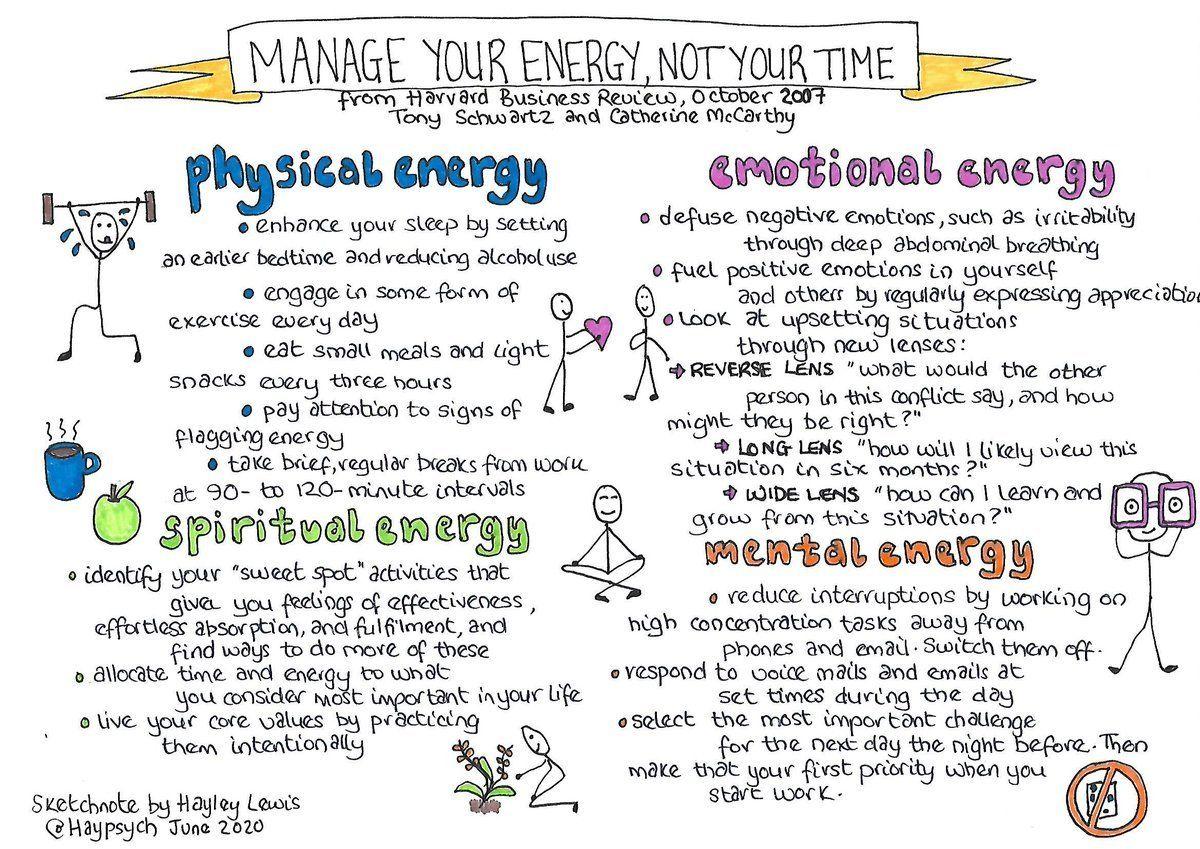 MANAGE YOUR ENERGY, NOT YOUR TIME
from Harvard Business Review, October 2007
Tony Schwartz and Catherine McCarthy
physical energy
• enhance your sleep by setting
an earlier bedtime and reducing alcohol use
• engage in some form of
exercise every day
• eat small meals and light
snacks every three hours
• pay attention to signs of
flagging energy
• take brief, regular breaks from work
at 90- to 120-minute intervals
emotional energy
• defuse negative emotions, such as irritability
through deep abdominal breathing
• fuel positive emotions in yourself
and others by regularly expressing appreciation
• Look at upsetting situations
through new lenses:
→ REVERSE LENS "what would the other
person in this conflict say, and how
might they be right?"
→ LONG LENS "how will I likely view this
situation in six months?"
→ WIDE LENS "how can I learn and
grow from this situation?"
spiritual energy
• identify your "sweet spot" activities that
give you feelings of effectiveness,
effortless absorption, and fulfilment, and
find ways to do more of these
• allocate time and energy to what
you consider most important in your life
• live your core values by practicing
them intentionally
mental energy
• reduce interruptions by working on
high concentration tasks away from
phones and email. Switch them off.
• respond to voice mails and emails at
set times during the day
• select the most important challenge
for the next day the night before. Then
make that your first priority when you
start work.
Sketchnote by Hayley Lewis
@Haypsych June 2020